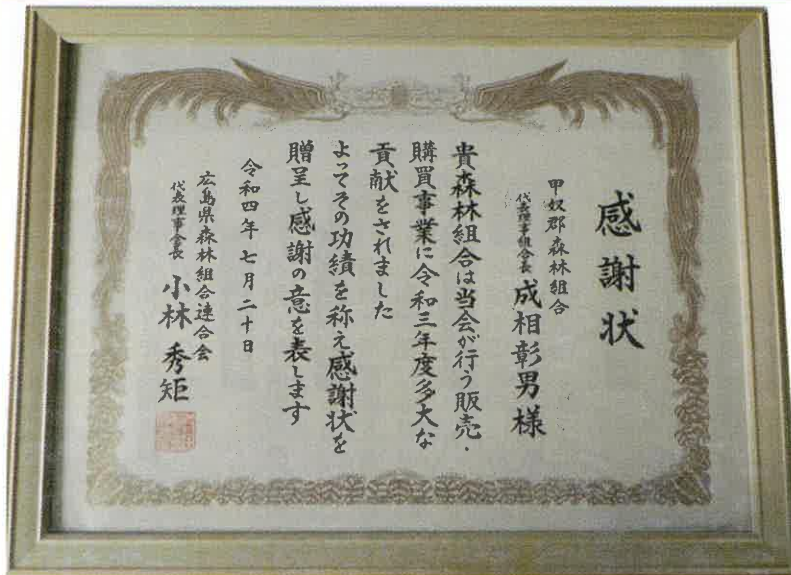 感謝状
甲奴郡森林組合
代表理事組合長 成相彰男様
貴森林組合は当会が行う販売・
購買事業に令和三年度多大な
貢献をされました
よってその功績を称え感謝状を
贈呈し感謝の意を表します
令和四年七月二十日
広島県森林組合連合会
代表理事会長 小林秀矩